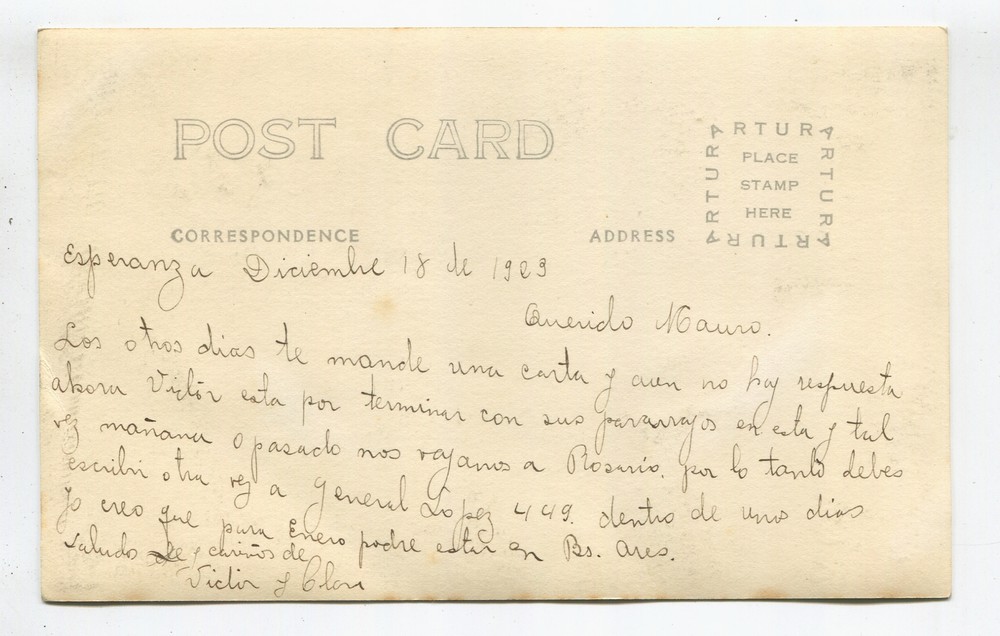 POST CARD
ARTURA
ARTURA
ARTURA
ARTURA
PLACE
STAMP
HERE
CORRESPONDENCE
ADDRESS
Esperanza Diciembre 18 de 1929
Querido Mauro.
Los otros dias te mande una carta y aun no hay respuesta
ahora Victor esta por terminar con sus pararrayos en esta y tal
vez mañana o pasado nos vayamos a Rosario. por lo tanto debes
escribir otra vez a General Lopez 449. dentro de unos dias
yo creo que para Enero podre estar en Bs. Ares.
saludos y cariños de
Victor y Clara